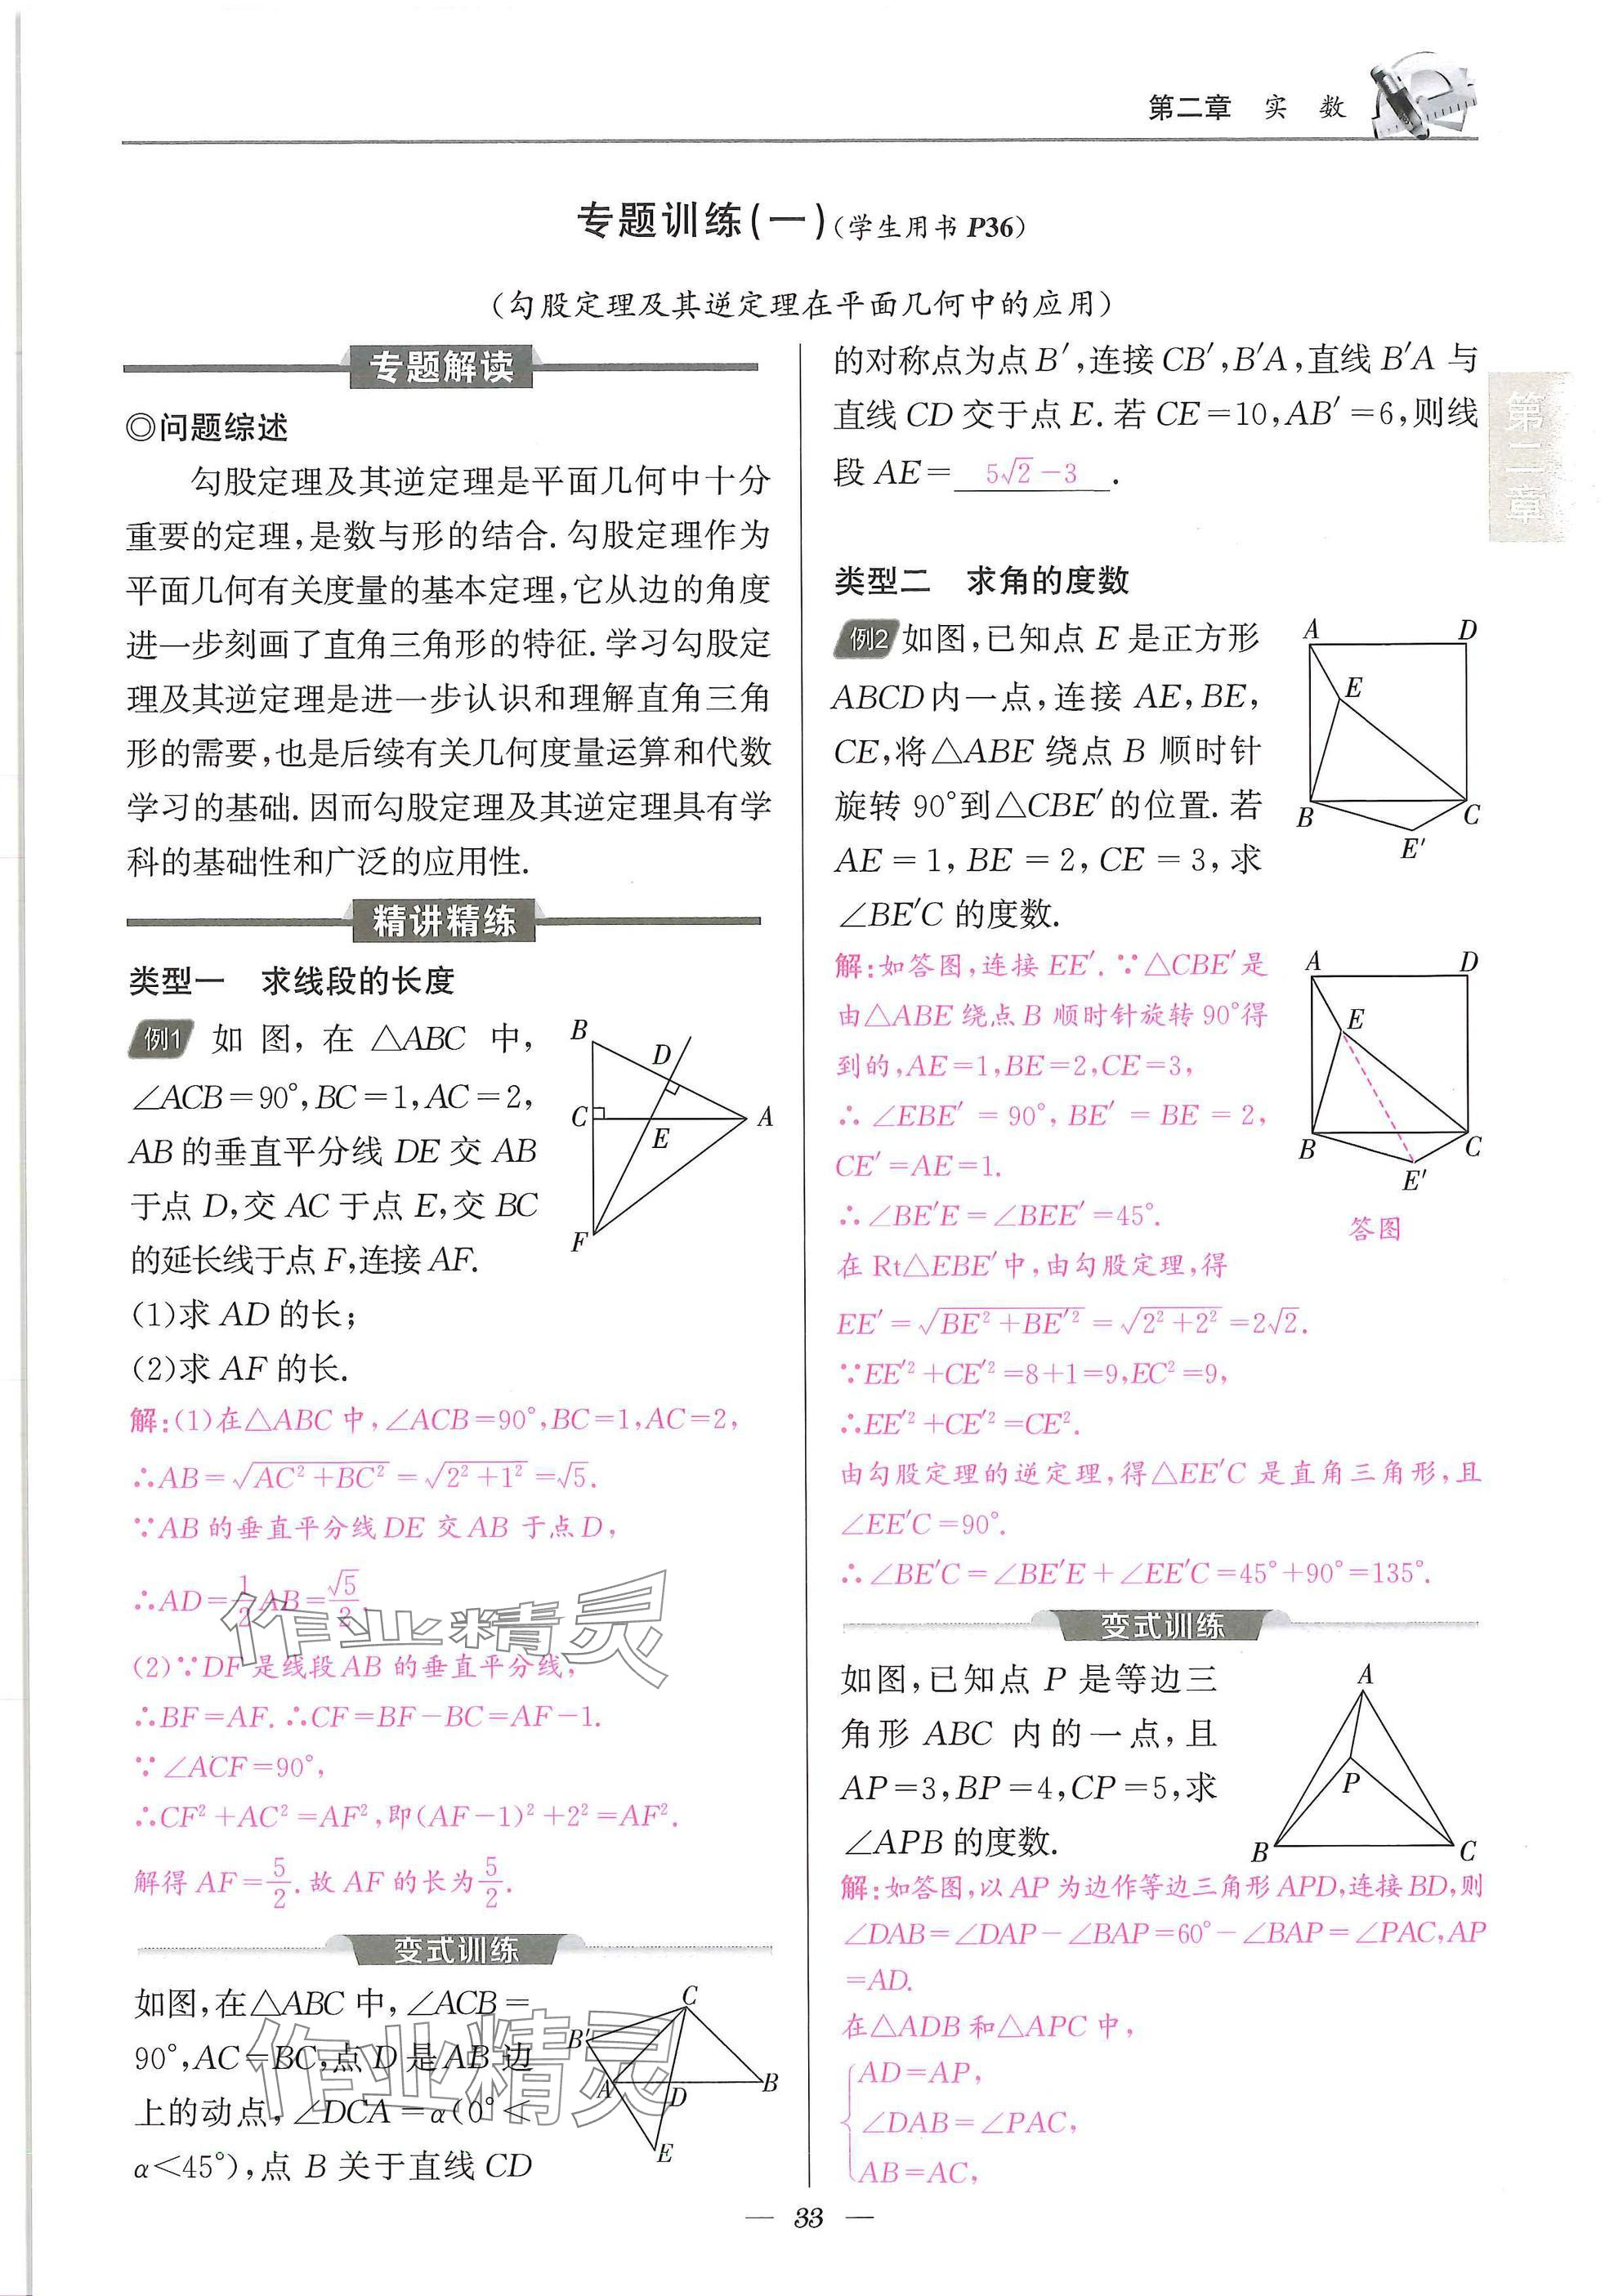 第二章 实 数
专题训练(一)(学生用书 P36)
(勾股定理及其逆定理在平面几何中的应用)
专题解读
◎问题综述
勾股定理及其逆定理是平面几何中十分
重要的定理,是数与形的结合.勾股定理作为
平面几何有关度量的基本定理,它从边的角度
进一步刻画了直角三角形的特征.学习勾股定
理及其逆定理是进一步认识和理解直角三角
形的需要,也是后续有关几何度量运算和代数
学习的基础.因而勾股定理及其逆定理具有学
科的基础性和广泛的应用性.
精讲精练
类型一 求线段的长度
例1 如图,在△ABC中,
∠ACB=90°,BC=1,AC=2,
AB的垂直平分线 DE 交 AB
于点 D,交 AC 于点 E,交 BC
的延长线于点 F,连接 AF.
(1)求 AD 的长;
(2)求 AF 的长.
B
D
C
A
E
F
解:(1)在△ABC 中,∠ACB=90°,BC=1,AC=2,
∴AB=√(AC²+BC²)=√(2²+1²)=√5.
∵AB 的垂直平分线 DE 交 AB 于点 D,
∴AD=1/2 AB=√5/2.
(2)∵DF 是线段 AB 的垂直平分线,
∴BF=AF.∴CF=BF-BC=AF-1.
∵∠ACF=90°,
∴CF²+AC²=AF²,即(AF-1)²+2²=AF².
解得 AF=5/2.故 AF 的长为5/2.
变式训练
如图,在△ABC 中,∠ACB=
90°,AC=BC,点 D 是 AB 边
上的动点,∠DCA=α(0°<
α<45°),点 B 关于直线 CD
C
B′
A
D
B
E
作业精灵
作业精灵
的对称点为点 B′,连接 CB′,B′A,直线 B′A 与
直线 CD 交于点 E.若 CE=10,AB′=6,则线
段 AE= 5√2-3 .
类型二 求角的度数
例2 如图,已知点 E 是正方形
ABCD内一点,连接 AE,BE,
CE,将△ABE 绕点 B 顺时针
旋转 90°到△CBE′的位置.若
AE=1,BE=2,CE=3,求
∠BE′C 的度数.
A
D
E
B
C
E′
解:如答图,连接 EE′.∵△CBE′是
由△ABE 绕点 B 顺时针旋转 90°得
到的,AE=1,BE=2,CE=3,
∴∠EBE′=90°,BE′=BE=2,
CE′=AE=1.
∴∠BE′E=∠BEE′=45°.
A
D
E
B
C
E′
答图
在 Rt△EBE′中,由勾股定理,得
EE′=√(BE²+BE′²)=√(2²+2²)=2√2.
∵EE′²+CE′²=8+1=9,EC²=9,
∴EE′²+CE′²=CE².
由勾股定理的逆定理,得△EE′C 是直角三角形,且
∠EE′C=90°.
∴∠BE′C=∠BE′E+∠EE′C=45°+90°=135°.
变式训练
如图,已知点 P 是等边三
角形 ABC 内的一点,且
AP=3,BP=4,CP=5,求
∠APB 的度数.
A
P
B
C
解:如答图,以 AP 为边作等边三角形 APD,连接 BD,则
∠DAB=∠DAP-∠BAP=60°-∠BAP=∠PAC,AP
=AD.
在△ADB 和△APC 中,
AD=AP,
∠DAB=∠PAC,
AB=AC,
第二章
— 33 —